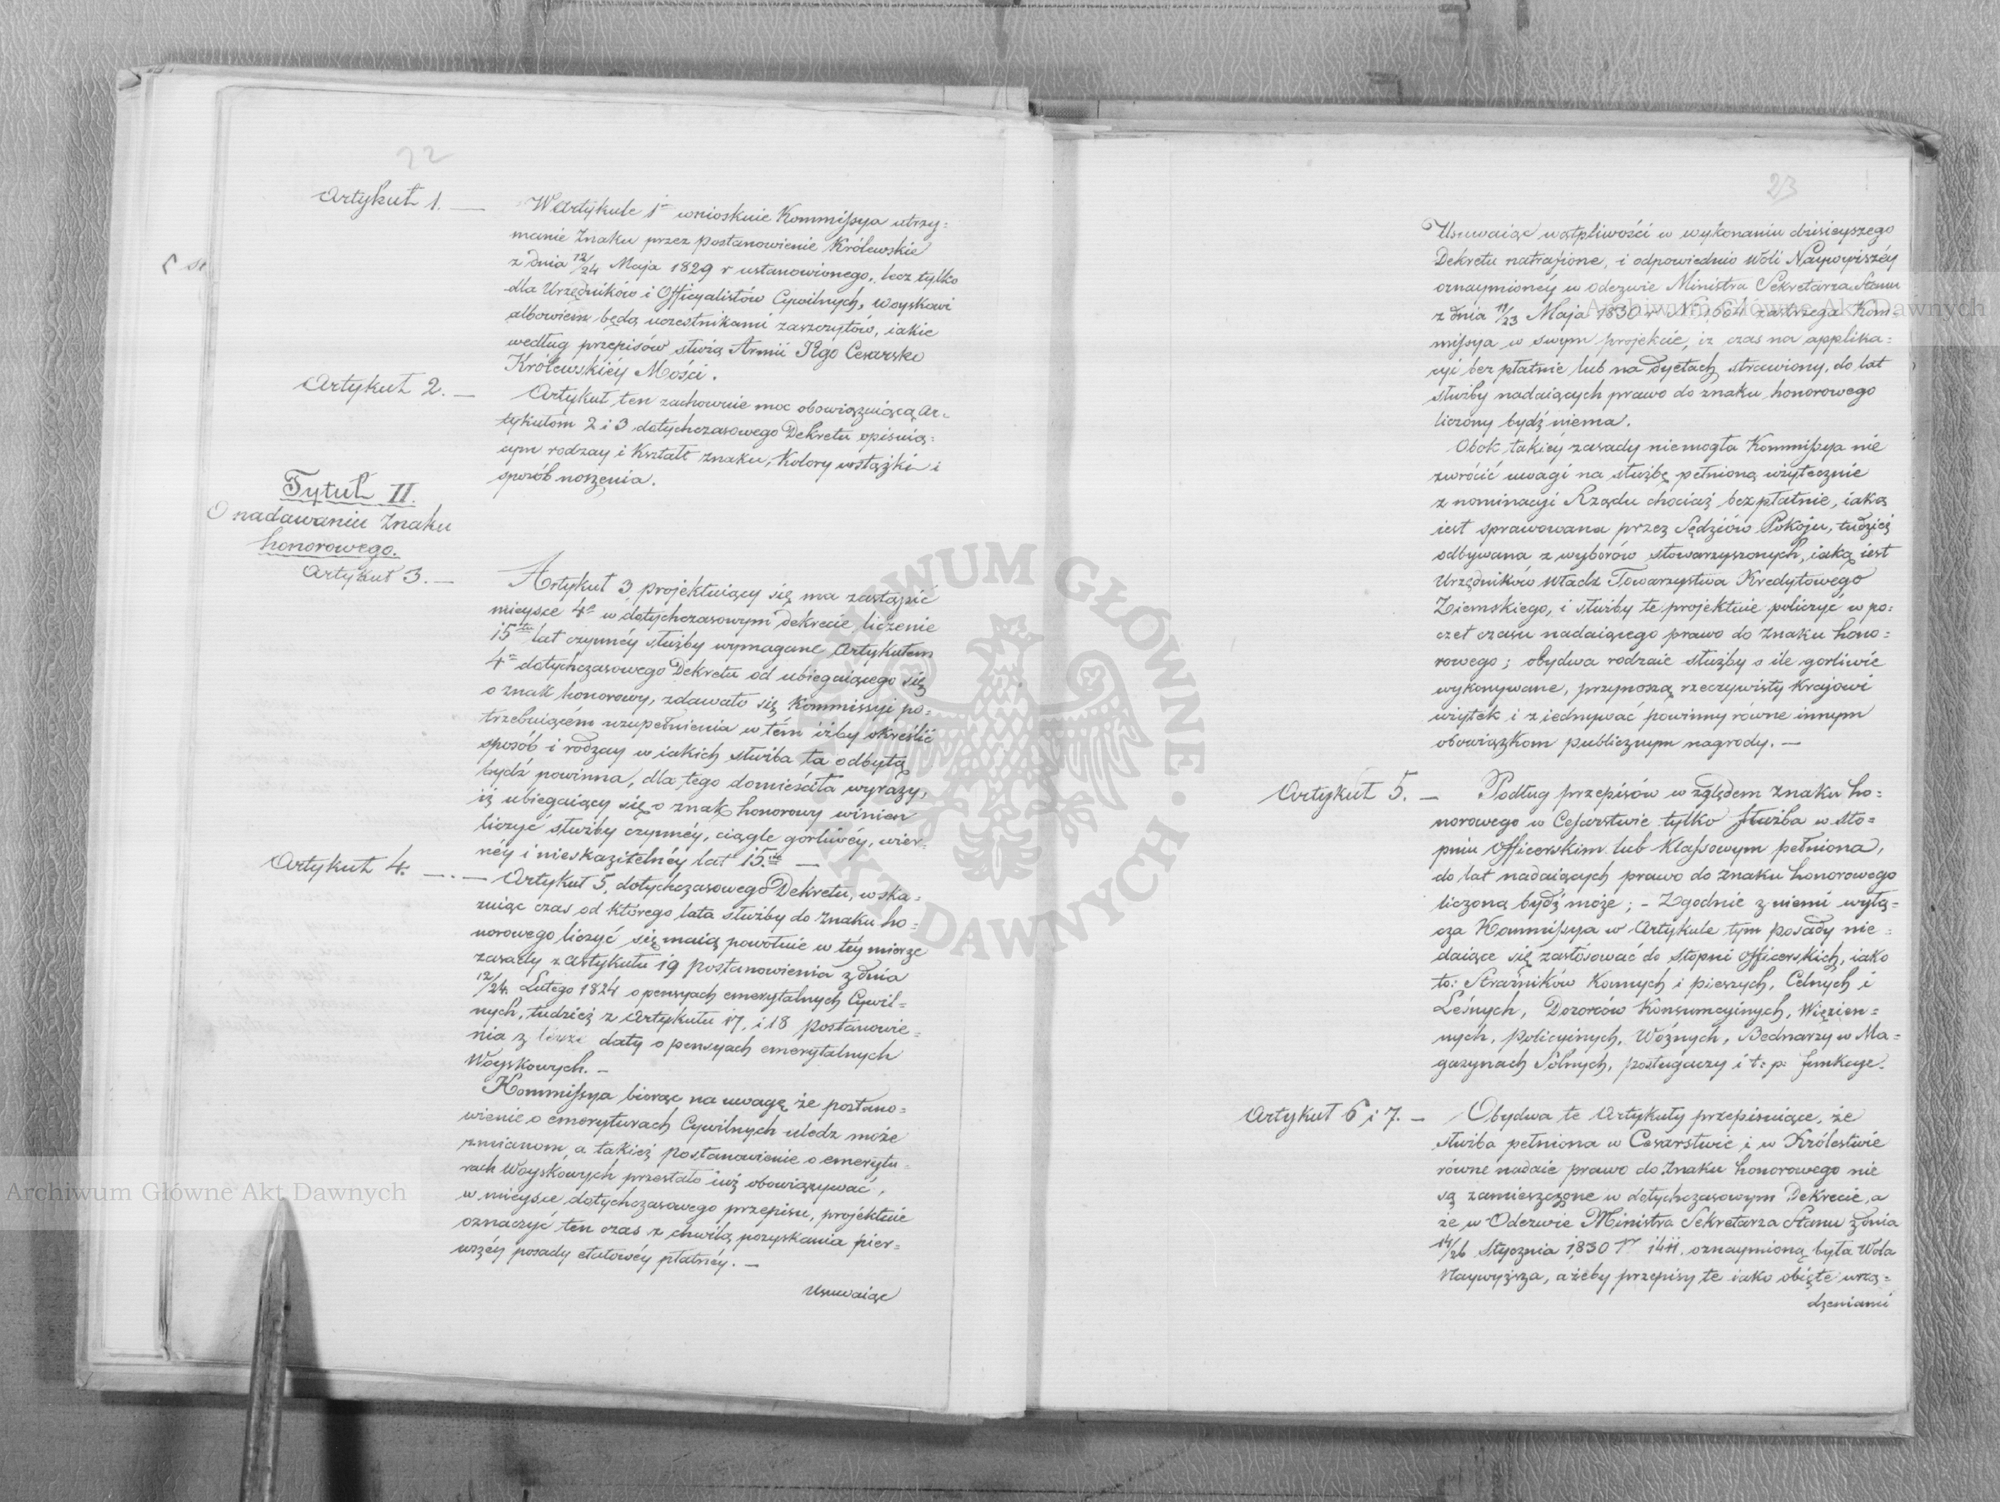 22
Artykuł 1. —
W Artykule 1ᵐ wnioskuie Kommissya utrzy=
manie Znaku przez postanowienie Królewskie
z dnia 12/24 Maja 1829 r ustanowionego, lecz tylko
dla Urzędników i Officyalistów Cywilnych, woyskowi
albowiem będą uczestnikami zaszczytów, iakie
według przepisów służą Armii Jego Cesarsko
Królewskiéy Mości.
Artykuł 2. —
Artykuł ten zachowuie moc obowiązuiącą Ar=
tykułom 2 i 3 dotychczasowego Dekretu opisuią=
cym rodzay i Kształt znaku, Kolory wstążki i
sposób noszenia.
Tytuł II.
O nadawaniu Znaku
honorowego.
Artykuł 3. —
Artykuł 3 projektuiący się ma zastąpić
mieysce 4º w dotychczasowym dekrecie liczenie
15tu lat czynnéy służby wymagane Artykułem
4º dotychczasowego Dekretu od ubiegaiącego się
o znak honorowy, zdawało się Kommissyi po=
trzebuiącém uzupełnienia w tém iżby określić
sposób i rodzay w iakich służba ta odbytą
bydź powinna, dla tego domieściła wyrazy,
iż ubiegaiący się o znak honorowy winien
liczyć służby czynnéy, ciągle gorliwéy, wier=
néy i nieskazitelnéy lat 15cie —
Artykuł 4. —
. — Artykuł 5. dotychczasowego Dekretu, wska=
zuiąc czas od którego lata służby do znaku ho=
norowego liczyć się maią powołuie w téy mierze
zasady z Artykułu 19 postanowienia z dnia
12/24. Lutego 1824 o pensyach emerytalnych Cywil=
nych, tudzież z Artykułu 17. i 18 postanowie=
nia z daty o pensyach emerytalnych
Woyskowych. —
Kommissya biorąc na uwagę że postano=
wienie o emeryturach Cywilnych uledz może
zmianom, a takież postanowienie o emerytu=
rach Woyskowych przestało iuż obowiązywać,
w mieysce dotychczasowego przepisu, projektuie
oznaczyć ten czas z chwilą pozyskania pier=
wszéy posady etatowéy płatnéy. —
Usuwaiąc
23
Usuwaiąc wątpliwości w wykonaniu dzisieyszego
Dekretu natrafione, i odpowiednio woli Naywyższéy
oznaymionéy w odezwie Ministra Sekretarza Stanu
z dnia 11/23 Maja 1830 r Nº 1,604 zastrzega Kom=
missya w swym projekcie, iż czas na applika=
cyi bezpłatnie lub na dyetach strawiony, do lat
służby nadaiących prawo do znaku honorowego
liczony bydź niema.
Obok takiéy zasady niemogła Kommissya nie
zwrócić uwagi na służbę pełnioną użytecznie
z nominacyi Rządu chociaż bezpłatnie, iaką
iest sprawowana przez Sędziów Pokoju, tudzież
odbywana z wyborów stowarzyszonych, iaką iest
Urzędników Władz Towarzystwa Kredytowego
Ziemskiego, i służby te projektuie policzyć w po=
czet czasu nadaiącego prawo do Znaku hono=
rowego; obydwa rodzaie służby o ile gorliwie
wykonywane, przynoszą rzeczywisty Krajowi
użytek i ziednywać powinny równe innym
obowiązkom publicznym nagrody. —
Artykuł 5. —
Podług przepisów względem znaku ho=
norowego w Cesarstwie tylko służba w sto=
pniu Officerskim lub Klassowym pełniona,
do lat nadaiących prawo do Znaku honorowego
liczoną bydź może; - Zgodnie z niemi wyłą=
cza Kommissya w Artykule tym posady nie=
daiące się zastosować do stopni officerskich, iako
to: Strażników Konnych i pieszych, Celnych i
Leśnych, Dozorców Konsumcyinych, Więzien=
nych, policyinych, Woźnych, Bednarzy w Ma=
gazynach Solnych, posługaczy i t: p: funkcye.
Artykuł 6 i 7. —
Obydwa te Artykuły przepisuiące, że
służba pełniona w Cesarstwie i w Królestwie
równe nadaie prawo do Znaku honorowego nie
są zamieszczone w dotychczasowym Dekrecie, a
że w Odezwie Ministra Sekretarza Stanu z dnia
14/26 Stycznia 1830 Nº 1411. oznaymioną była Wola
Naywyższa, ażeby przepisy te iako obięte urzą=
dzeniami
Archiwum Główne Akt Dawnych
Archiwum Główne Akt Dawnych
ARCHIWUM GŁÓWNE AKT DAWNYCH